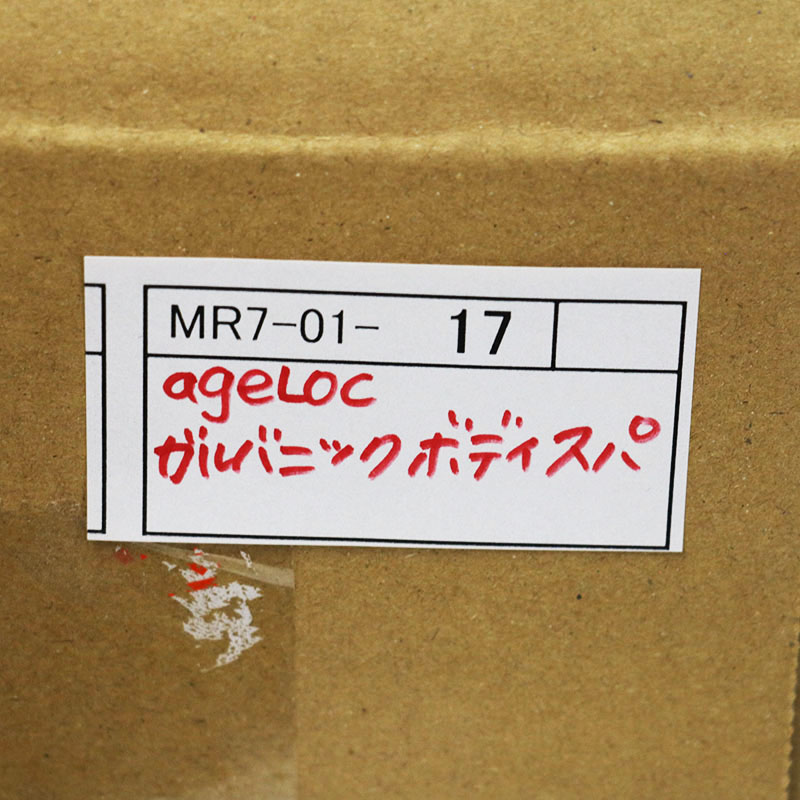 MR7-01- 17
ageLOC
ガルバニックボディスパ